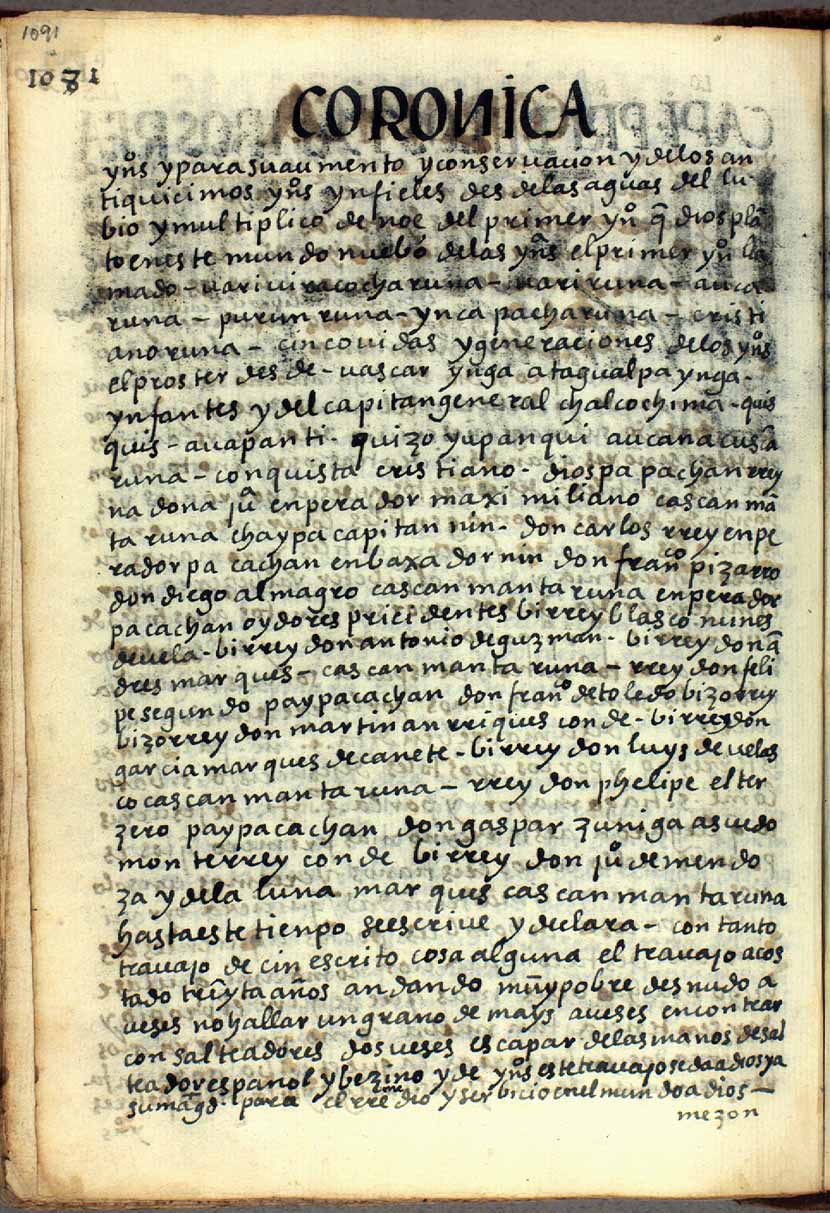 1091
1081
CORONICA
yn̊s y para su aumento y conservacion y de los an
tiquicimos yn̊s ynfieles desde las aguas del lu
bio y multiplico de noe del primer yn̊ q̃ dios plã
to en este mundo nuebo de las yñs el primer yn̊ lla
mado - uari uiracocharuna - uari runa - auca
runa - purun runa - ynca pacha runa - cristi
ano runa - cinco uidas y generaciones de los yn̊s
el proster desde - uascar ynga atagualpa ynga -
ynfantes y del capitan general chalcochima - quis
quis - auapanti - quizo yupanqui aucanacuscã
runa - conquista cristiano - dios pa pachan rrey
na dona juã enperador maximiliano cascan mã
ta runa chaypa capitannin - don carlos rrey enpe
rador pa cachan enbaxadornin don fran.co pizarro
don diego almagro cascanmanta runa enperador
pa cachan oydores pricidentes birrey blasco nunes
de uela - birrey don antonio de guzman - birrey don ã
dres marques - cascanmanta runa - rrey don feli
pe segundo paypa cachan don fran.o de toledo bizorrey
bizorrey don martin anrriques conde - birrey don
garcia marques de canete - birrey don luys de uelas
co cascanmanta runa - rrey don phelipe el ter
zero paypa cachan don gaspar zuniga asuedo
monterrey conde birrey don jů de mendo
za y de la luna marques cascanmanta runa
hasta este tienpo se escrive y declara - con tanto
travajo de cin escrito cosa alguna el travajo acos
tado treynta años andando muy pobre desnudo a
ueses no hallar un grano de mays aueses encontrar
con salteadores dos ueses escapar de las manos de sal
teador espanol y bezino y de yn̊s este travajo se da a dios y a
su mag.d para el rreme dio y serbicio en el mundo a dios -
mezon